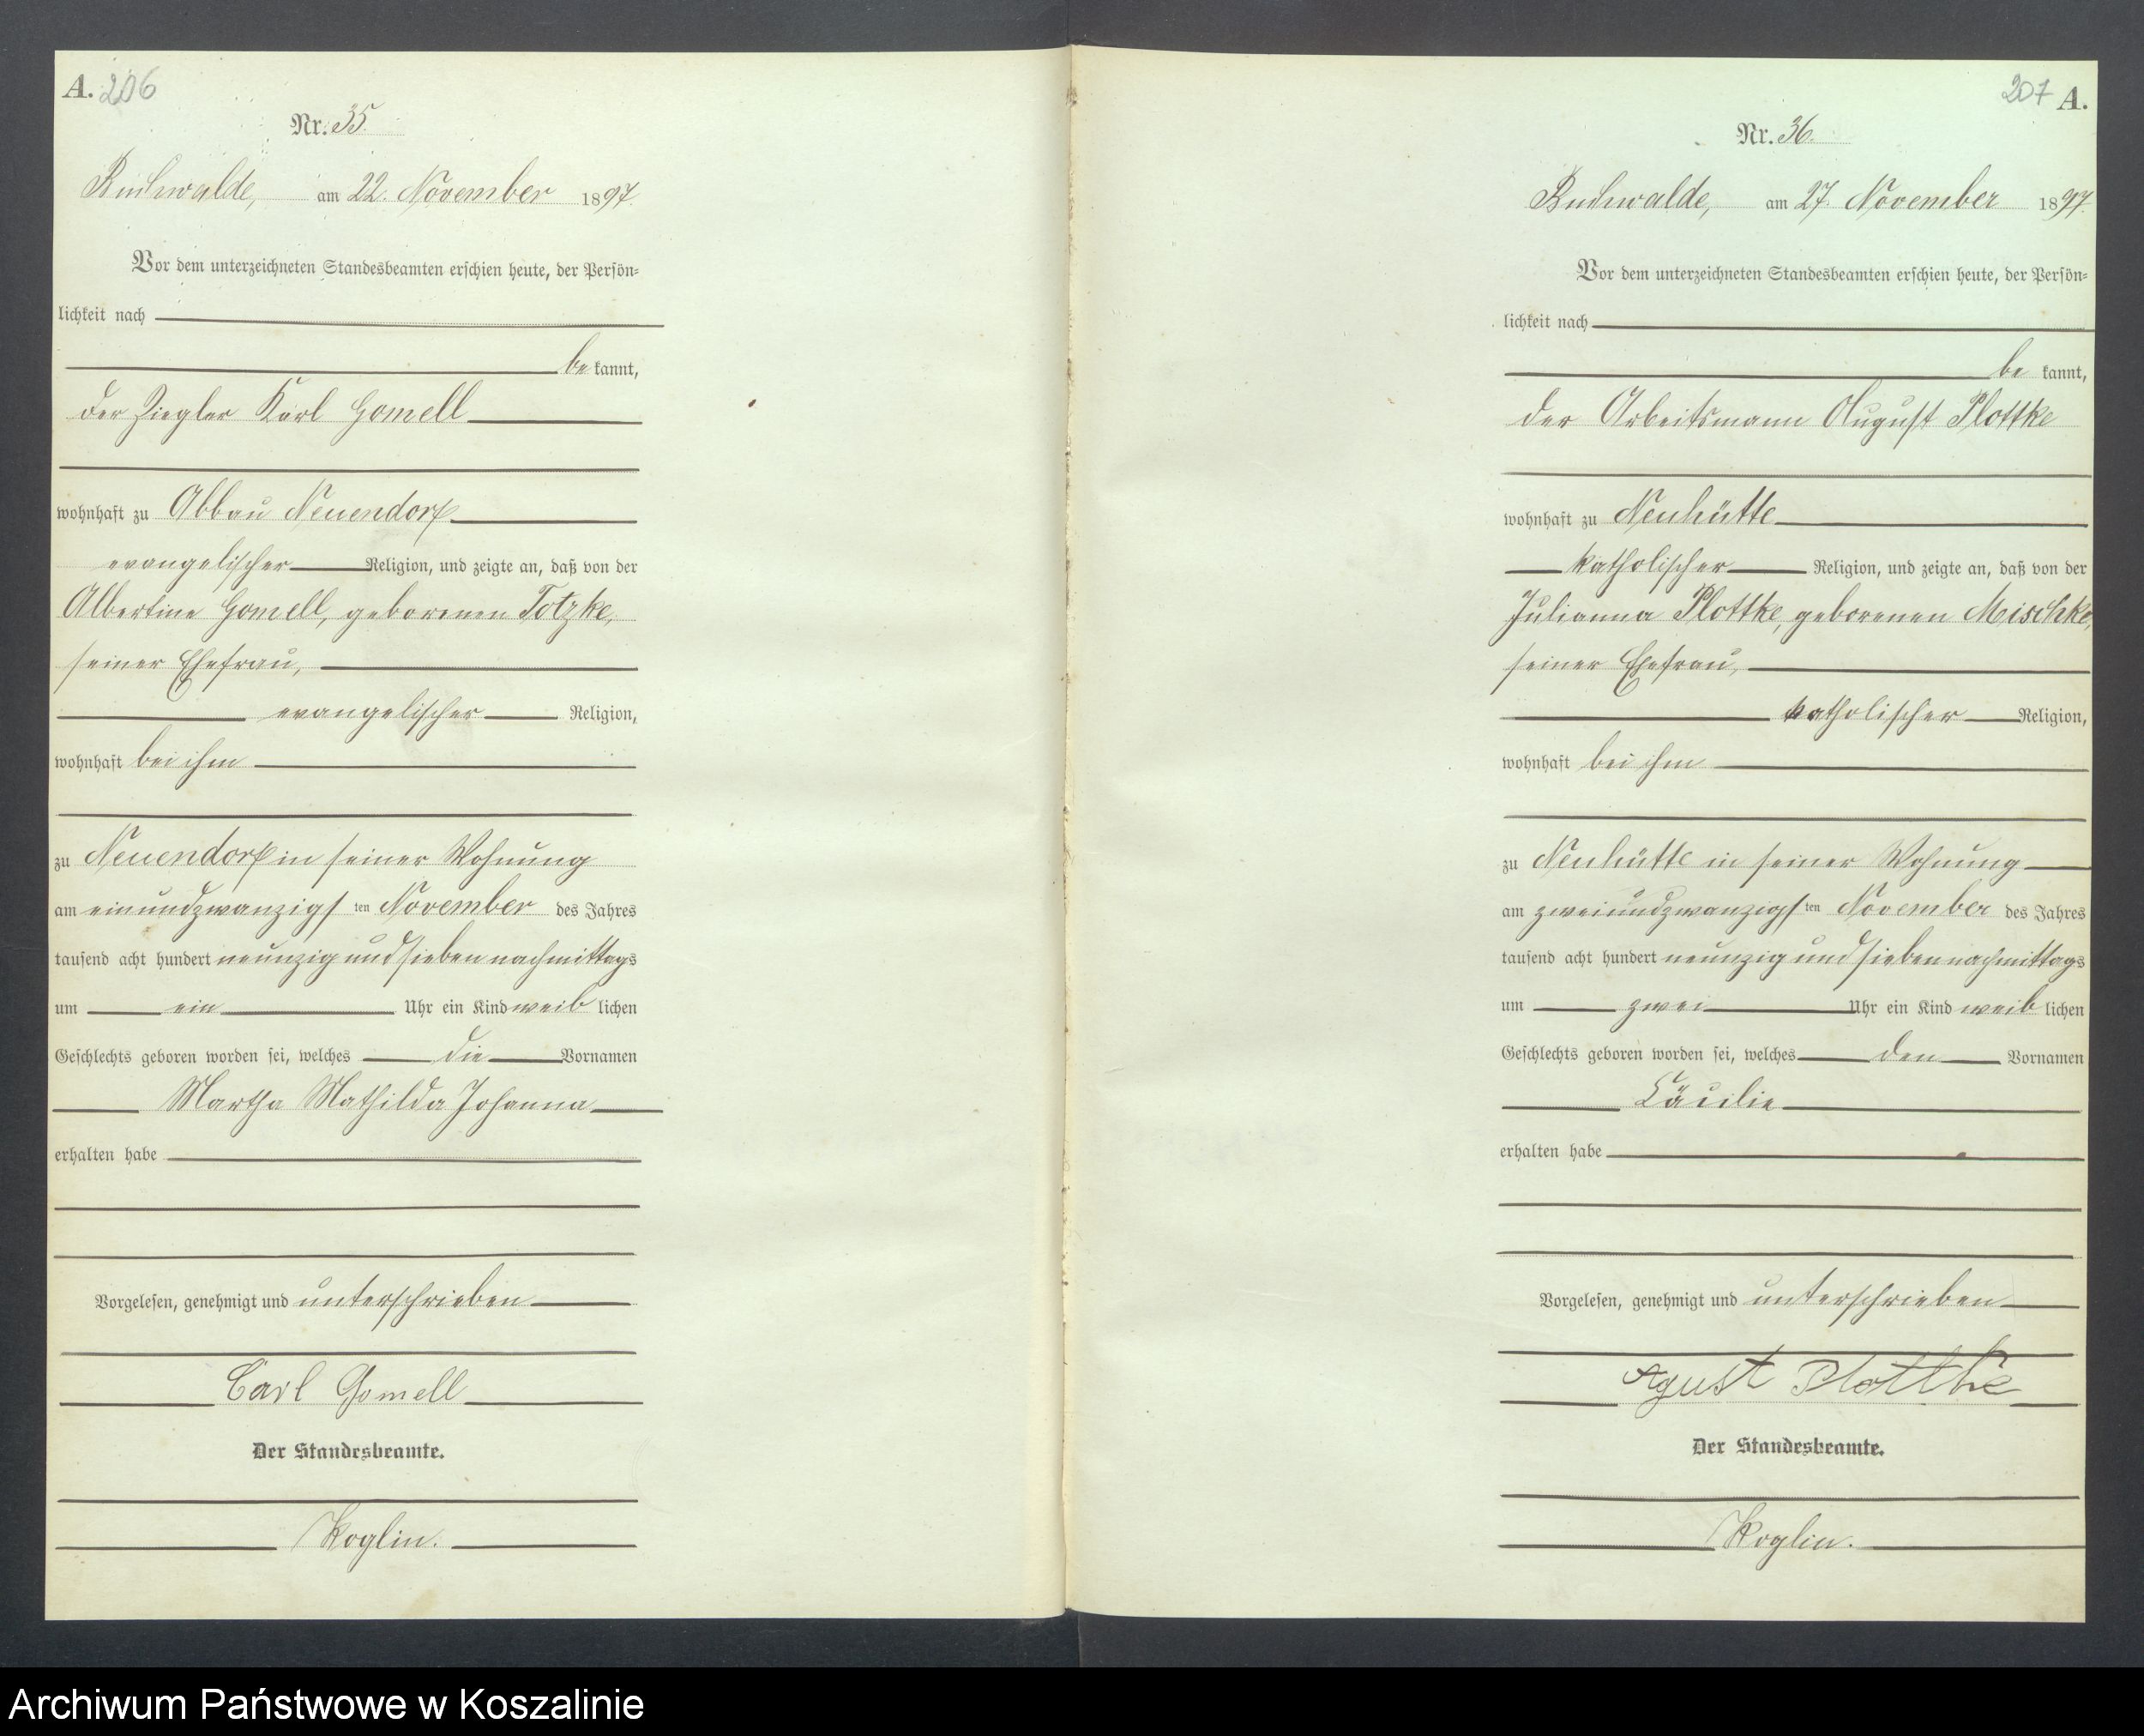 A. 206
Nr. 35.
Buchwalde, am 22. November 1897.
Vor dem unterzeichneten Standesbeamten erschien heute, der Persön-
lichkeit nach
be kannt,
der Ziegler Karl Gomell
wohnhaft zu Abbau Neuendorf
evangelischer Religion, und zeigte an, daß von der
Albertine Gomell, geborenen Totzke,
seiner Ehefrau,
evangelischer Religion,
wohnhaft bei ihm
zu Neuendorf in seiner Wohnung
am einundzwanzigs ten November des Jahres
tausend acht hundert neunzig und sieben nachmittags
um ein Uhr ein Kind weib lichen
Geschlechts geboren worden sei, welches die Vornamen
Martha Mathilda Johanna
erhalten habe
Vorgelesen, genehmigt und unterschrieben
Carl Gomell
Der Standesbeamte.
Koglin.
207 A.
Nr. 36.
Buchwalde, am 27. November 1897.
Vor dem unterzeichneten Standesbeamten erschien heute, der Persön-
lichkeit nach
be kannt,
der Arbeitsmann August Plottke
wohnhaft zu Neuhütte
katholischer Religion, und zeigte an, daß von der
Julianna Plottke, geborenen Mischke,
seiner Ehefrau,
katholischer Religion,
wohnhaft bei ihm
zu Neuhütte in seiner Wohnung
am zweiundzwanzigs ten November des Jahres
tausend acht hundert neunzig und sieben nachmittags
um zwei Uhr ein Kind weib lichen
Geschlechts geboren worden sei, welches den Vornamen
Cäcilie
erhalten habe
Vorgelesen, genehmigt und unterschrieben
Agust Plottke
Der Standesbeamte.
Koglin.
Archiwum Państwowe w Koszalinie